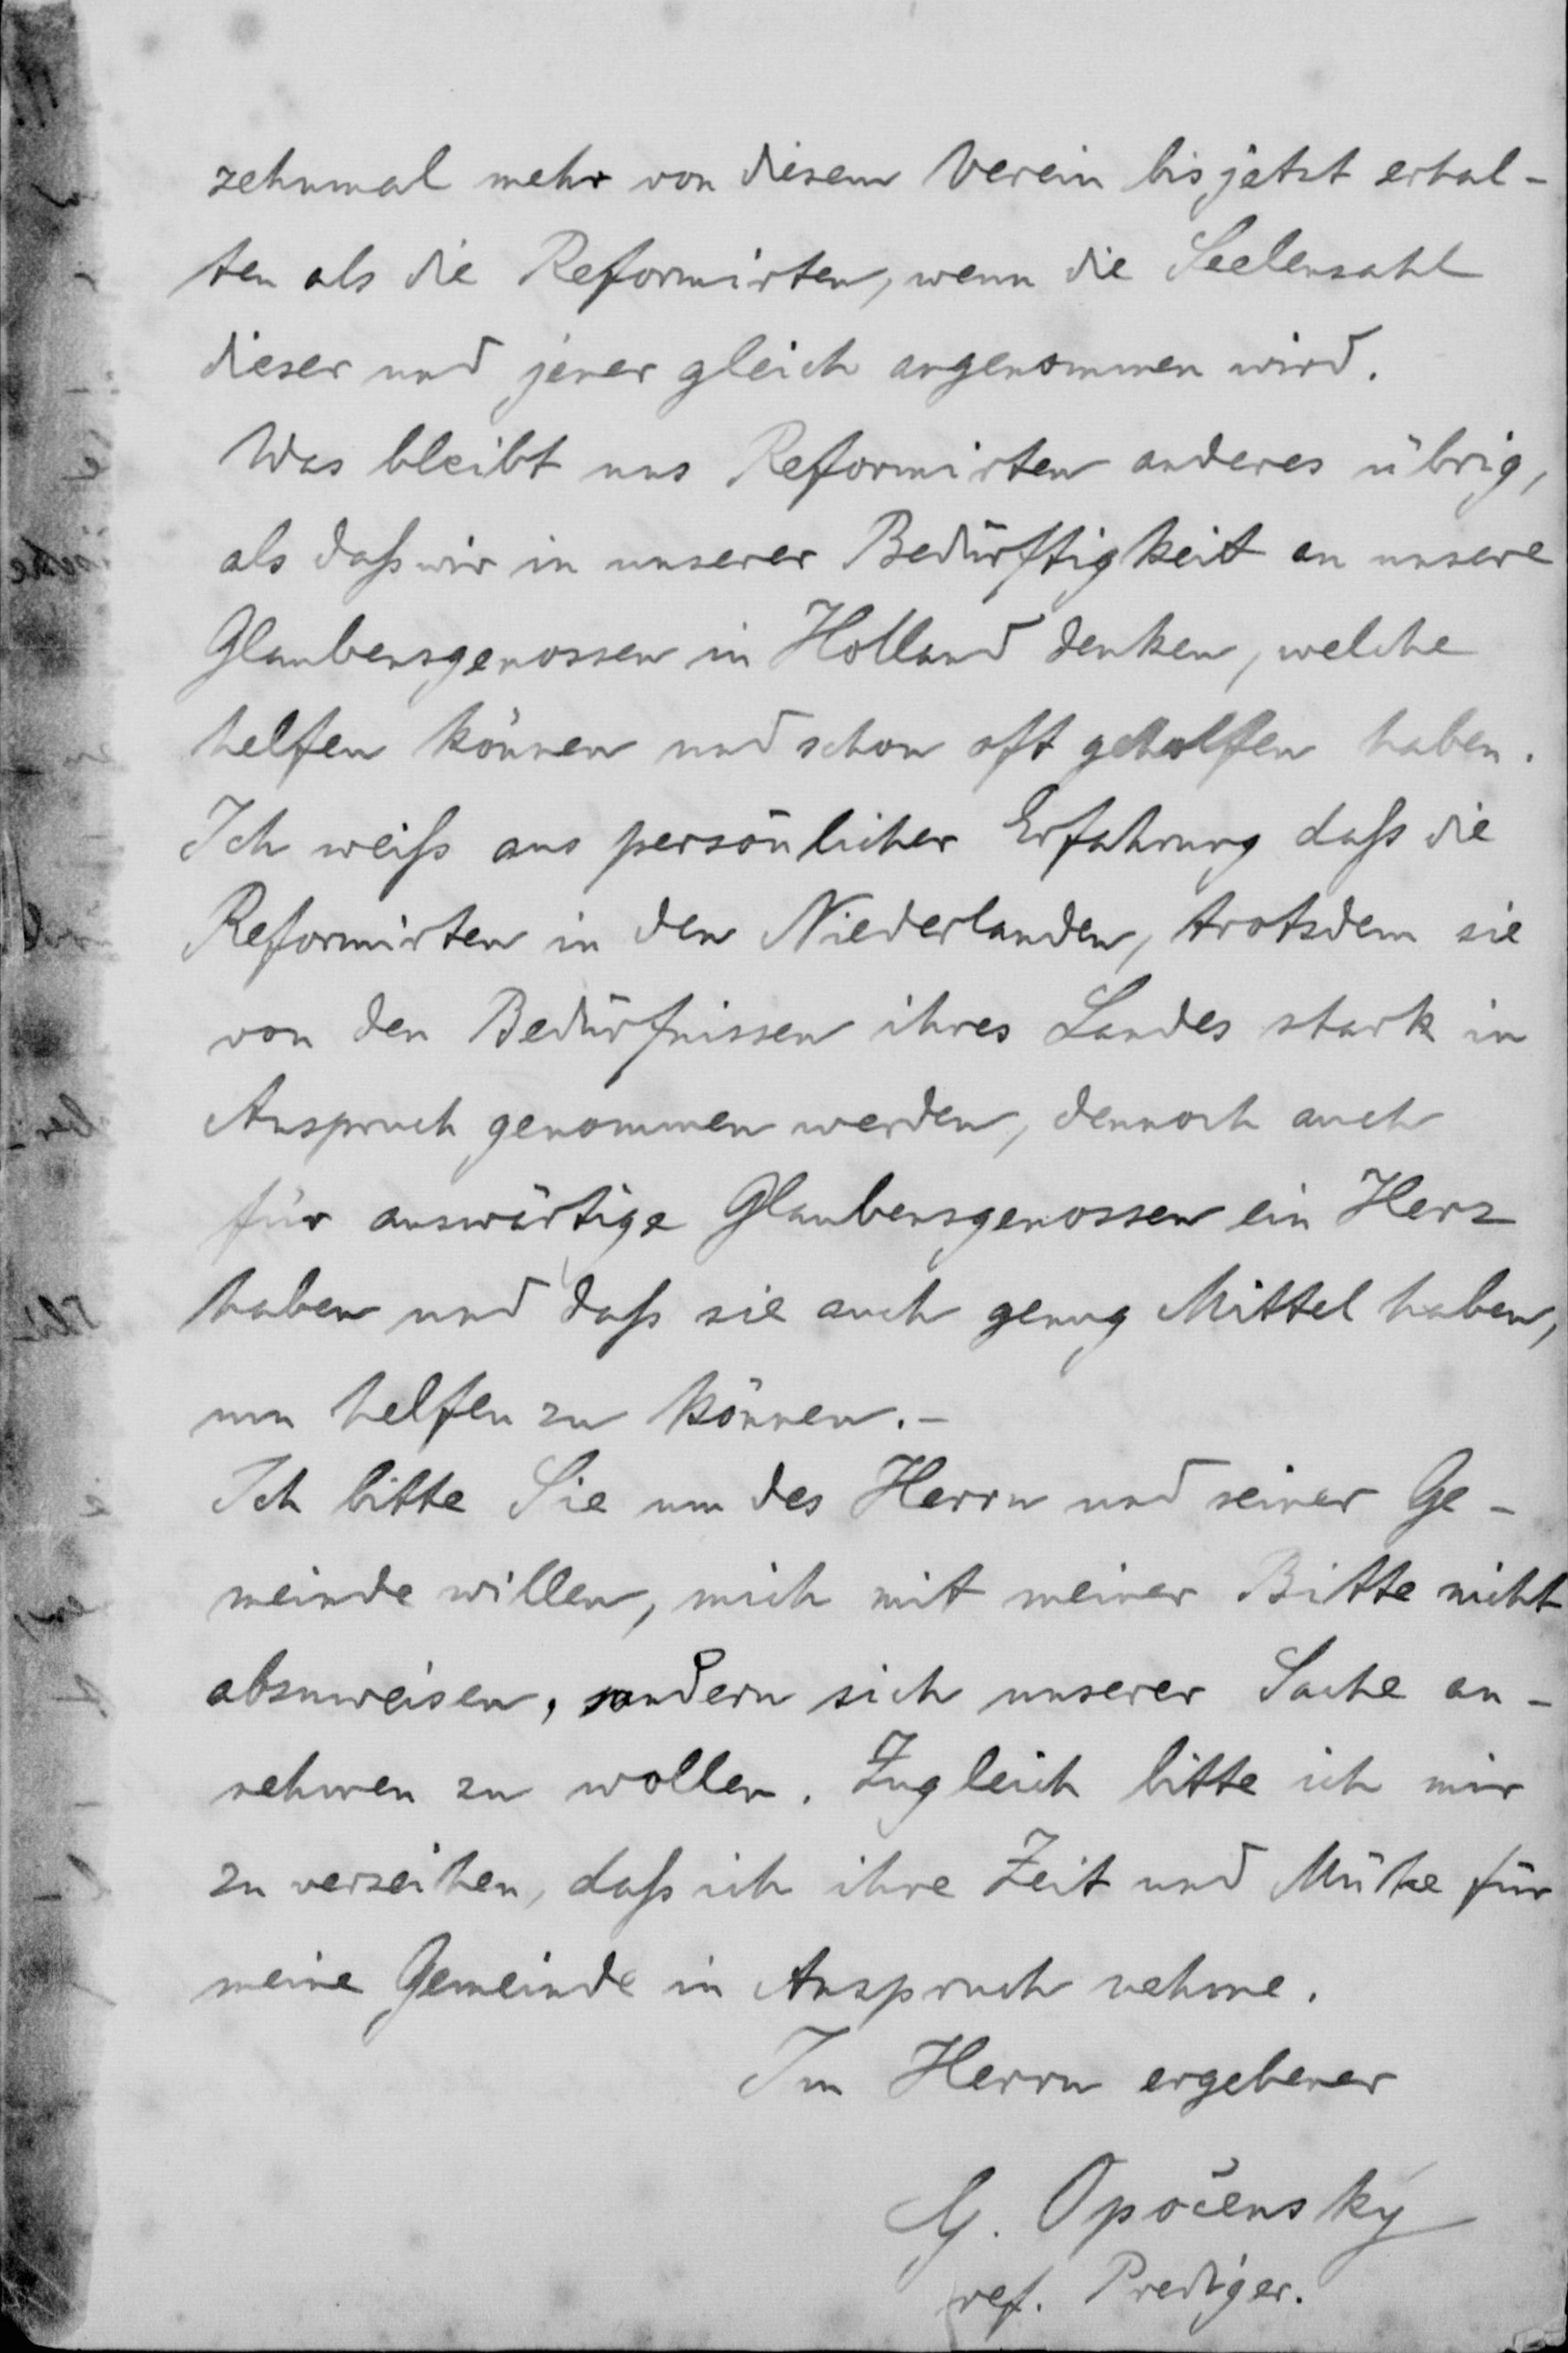 zehnmal mehr von diesem Verein bis jetzt erhal-
ten als die Reformirten, wenn die Seelenzahl
dieser und jener gleich angenommen wird.
Was bleibt uns Reformirten anderes übrig,
als daß wir in unserer Bedürftigkeit an unsere
Glaubensgenossen in Holland denken, welche
helfen können und schon oft geholfen haben.
Ich weiß aus persönlicher Erfahrung daß die
Reformirten in den Niederlanden, trotzdem sie
von den Bedürfnissen ihres Landes stark in
Anspruch genommen werden, dennoch auch
für auswärtige Glaubensgenossen ein Herz
haben und daß sie auch genug Mittel haben,
um helfen zu können.-
Ich bitte Sie um des Herrn und seiner Ge-
meinde willen, mich mit meiner Bitte nicht
abzuweisen, sondern sich unserer Sache an-
nehmen zu wollen. Zugleich bitte ich mir
zu verzeihen, daß ich ihre Zeit und Mühe für
meine Gemeinde in Anspruch nehme.
Im Herrn ergebener
G. Opočenský
ref. Prediger.